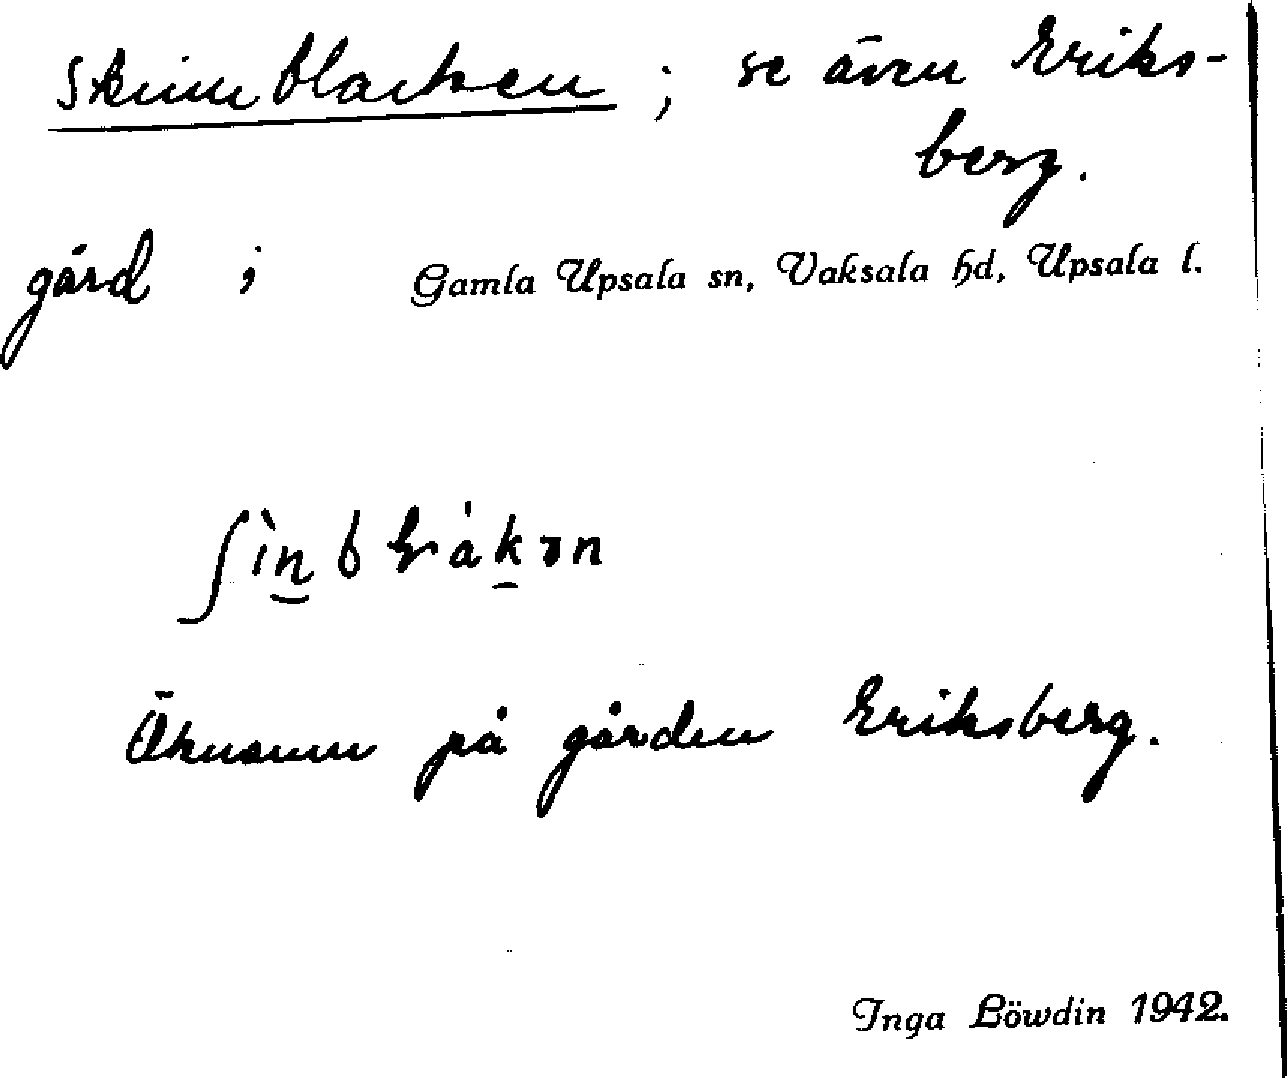 Skinnblacken; se även Eriks-
berg.
gård i Gamla Upsala sn, Vaksala hd, Upsala l.
ʃìn̲blák̲ən
Öknamn på gården Eriksberg.
Inga Löwdin 1942.